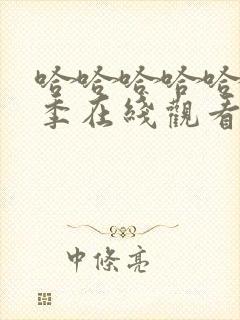 哈哈哈哈哈
季在綫觀看
中條亮